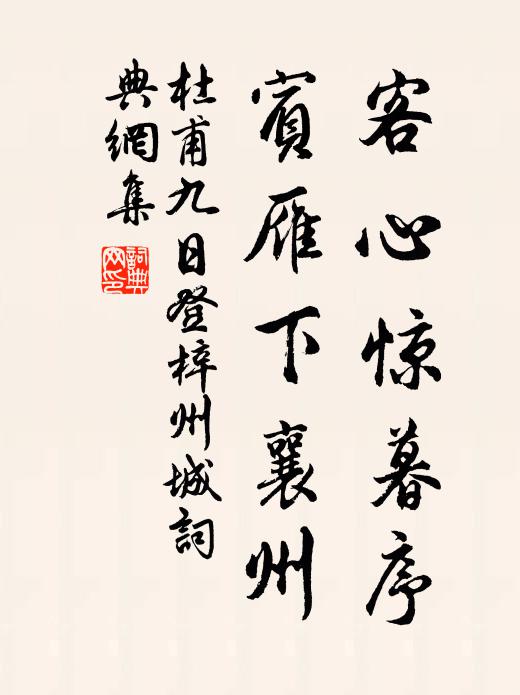 客心惊暮序
賓雁下襄州
杜甫九日登梓州城詞
典網集
詞典
网印